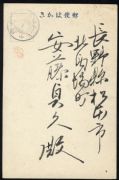 郵便はかき
長野縣松本市
北馬場町
安藤貞久殿